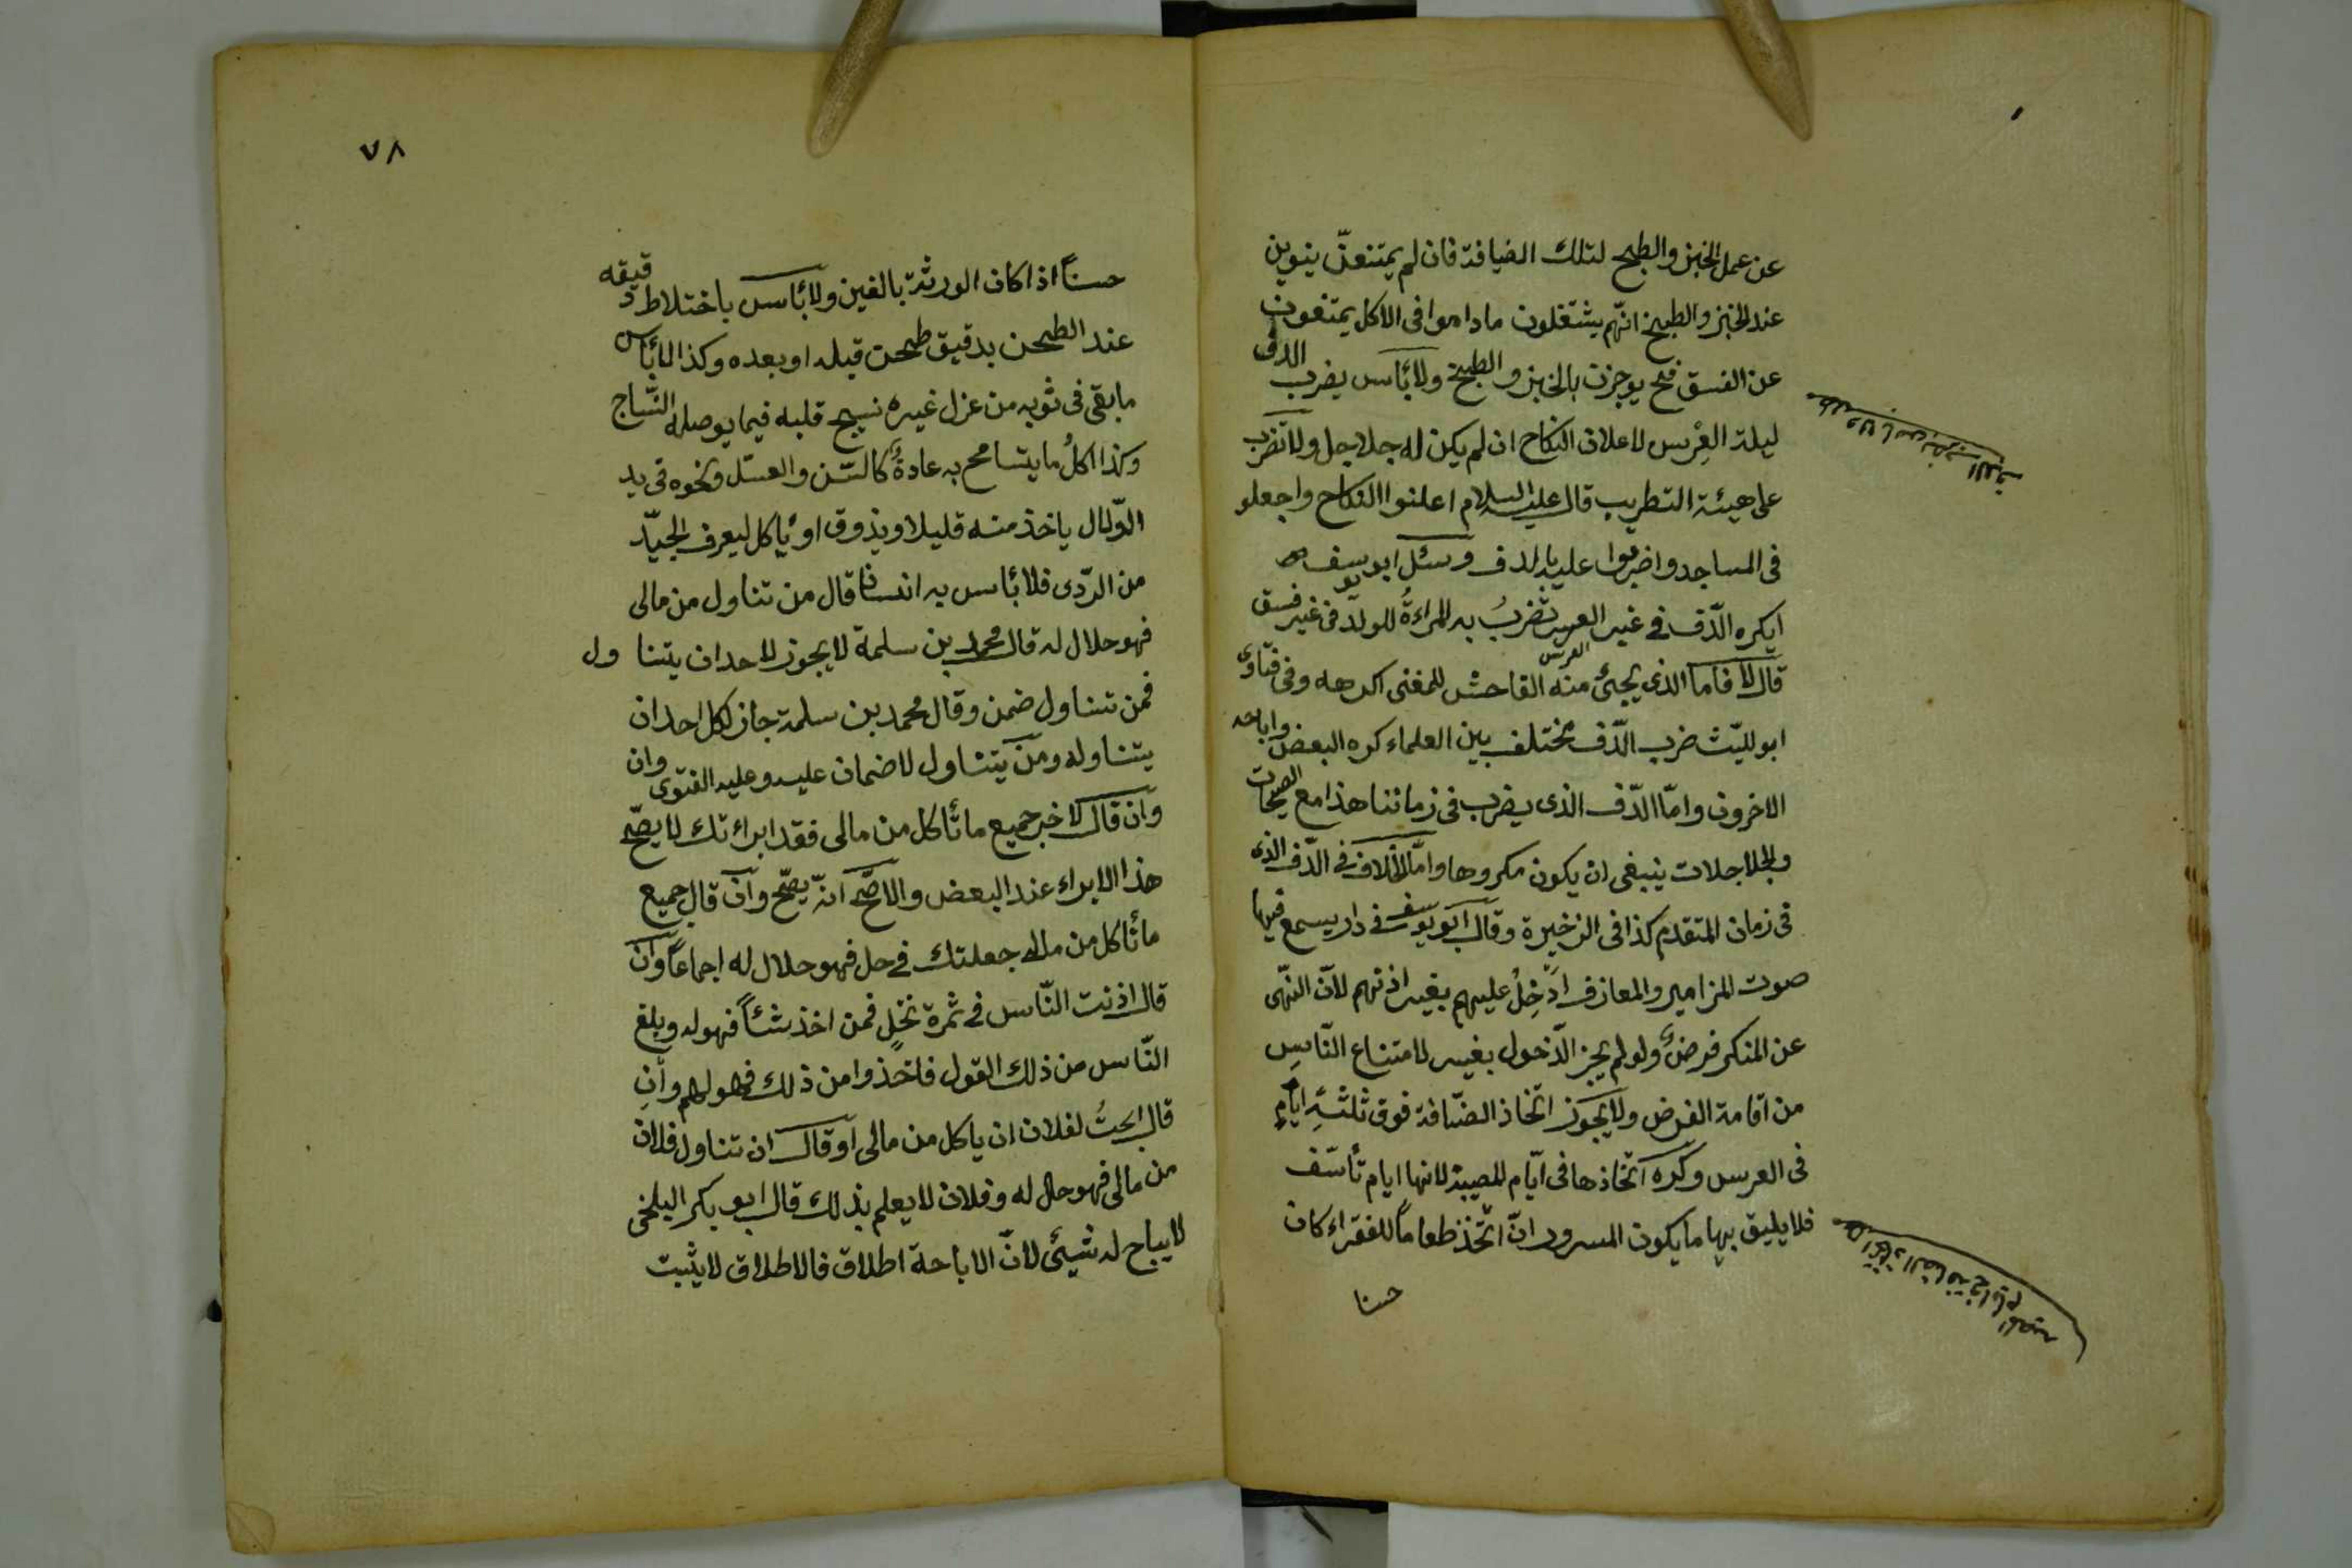 عن عمل الخبز والطبخ لتلك الضيافة فان لم يمتنعن ينوين
عند الخبز والطبخ انهم يشتغلون ما داموا فى الاكل يمتنعون
عن الفسق فح يوجرن بالخبز والطبخ ولا بأس بضرب الدف
ليلة العرس لاعلان النكاح ان لم يكن له جلاجل ولا تضرب
على هيئة التطريب قال عليه السلام اعلنوا النكاح واجعلو
فى المساجد واضربوا عليه بالدف وسئل ابو يوسف
ايكره الدّف فى غير العرس تضربُ به المراءةُ للولد فى غير فسق
قال لا فاما الذى يجئ منه الفاحش للمغنى اكرهه وفى فتاوى
ابو لليّث ضرب الدّف مختلف بين العلماء كره البعض واباحه
الاخرون وامّا الدّف الذى يضرب فى زماننا هذا مع الصيحات
والجلاجلات ينبغى ان يكون مكروها وامّا الخلاف فى الدّف الذى
فى زمان المتقدم كذا فى الزخيرة وقال ابو يوسف فى دار يسمع فيها
صوت المزامير والمعازف ادخل عليهم بغير اذنهم لانّ النّهى
عن المنكر فرض ولو لم يجز الدّخول بغير لامتناع النّاس
من اقامة الفرض ولا يجوز اتخاذ الضيافة فوق ثلثة ايام
فى العرس وكره اتّخاذها فى ايّام المصيبة لانها ايام تأسّف
فلا يليق بها ما يكون المسرور انّ اتّخذ طعاماً للفقراء كان
حسنا
٧٨
حسناً اذا كان الورثة بالغين ولا بأس باختلاط دقيقه
عند الطحن بدقيق طحن قبله او بعده وكذا لا بأس
ما بقى فى ثوبه من غزل غيره نسيج قلبه فيما يوصله النّساج
وكذا اكلُ ما يتسامح به عادةً كالسّمن والعسل ونحوه فى يد
الدّلال ياخذ منه قليلا ويذوق او يأكل ليعرف الجيّد
من الرّدى فلا بأس به انسانا قال من تناول من مالى
فهو حلال له قال محمد بن سلمة لا يجوز لاحد ان يتناول
فمن تناول ضمن وقال محمد بن سلمة جاز لكل احد ان
يتناوله ومن يتناول لا ضمان عليه وعليه الفتوى وان
وان قال لاخر جميع ما تأكل من مالى فقد ابراءتك لا يصحّ
هذا الابراء عند البعض والاصحّ انّه يصحّ وان قال جميع
ما تأكل من مالى جعلتك فى حل فهو حلال له اجماعاً وان
قال اذنت النّاس فى ثمرة نخلٍ فمن اخذ شئاً فهو له وبلغ
النّاس من ذلك القول فاخذوا من ذلك فهو لهم وان
قال ابحتُ لفلان ان ياكل من مالى او قال ان تناول فلان
من مالى فهو حل له وفلان لا يعلم بذلك قال ابو بكر البلخى
لا يباح له شيئ لانّ الاباحة اطلاق فالاطلاق لا يثبت